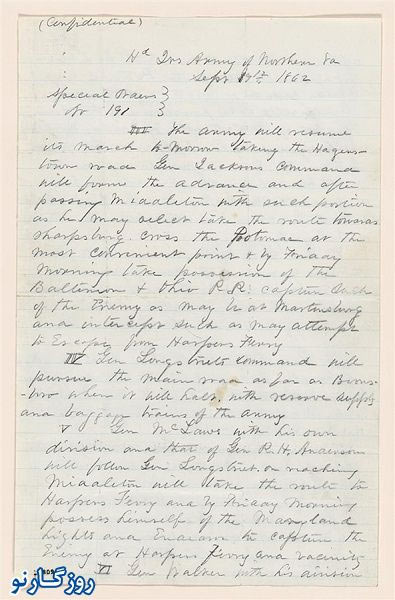 (Confidential)
Hd Qrs Army of Northern Va
Sept 9th 1862
Special Orders }
No 191 }
III The Army will resume
its march to-morrow taking the Hagers-
town road. Gen Jacksons Command
will forme the advance and after
passing Middleton with such portion
as he may select take the route towards
Sharpsburg. Cross the Potomac at the
most convenient point & by Friday
Morning take possession of the
Baltimore & Ohio R.R. capture such
of the Enemy as may be at Martinsburg
and intercept such as may attempt
to Escape from Harpers Ferry
IV Gen Longstreets command will
pursue the main road as far as Boons-
boro where it will halt, with reserve supply
and baggage trains of the army
V Gen McLaws with his own
division and that of Gen R. H. Anderson
will follow Gen Longstreet. on reaching
Middleton will take the route to
Harpers Ferry and by Friday Morning
possess himself of the Maryland
hights and Endeavor to capture the
Enemy at Harpers Ferry and vacinity
VI Gen Walker with his division
روزگارنو